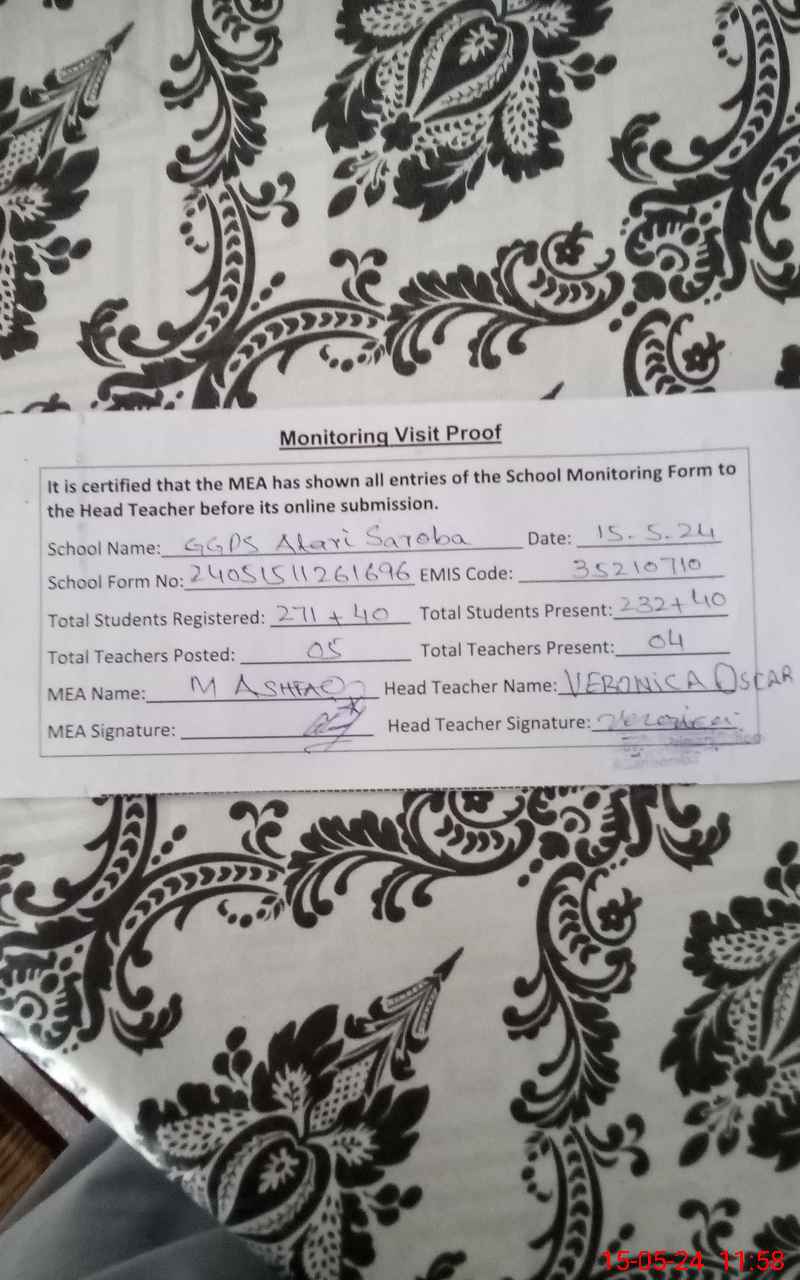 Monitoring Visit Proof
It is certified that the MEA has shown all entries of the School Monitoring Form to
the Head Teacher before its online submission.
School Name: GGPS Alari Saroba Date: 15.5.24
School Form No: 24051511261696 EMIS Code: 35210710
Total Students Registered: 271 + 40 Total Students Present: 232 + 40
Total Teachers Posted: 05 Total Teachers Present: 04
MEA Name: M ASHFAQ Head Teacher Name: VERONICA OSCAR
MEA Signature: Head Teacher Signature: Veronica
15-05-24 11:58